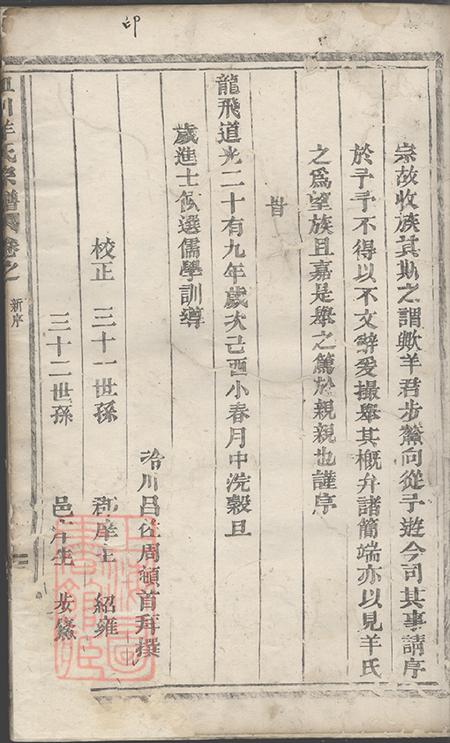 印
宗故收族其斯之謂歟羊君步鰲向從予遊今司其事請序
於予予不得以不文辭爰撮舉其概弁諸簡端亦以見羊氏
之為望族且嘉是舉之篤於親親也謹序
旹
龍飛道光二十有九年歲次己酉小春月中浣穀旦
歲進士候選儒學訓導
治川呂佐周頓首拜撰
校正 三十一世孫 郡庠生 紹雍
三十二世孫 邑庠生 步
羊氏宗譜 卷之 新序